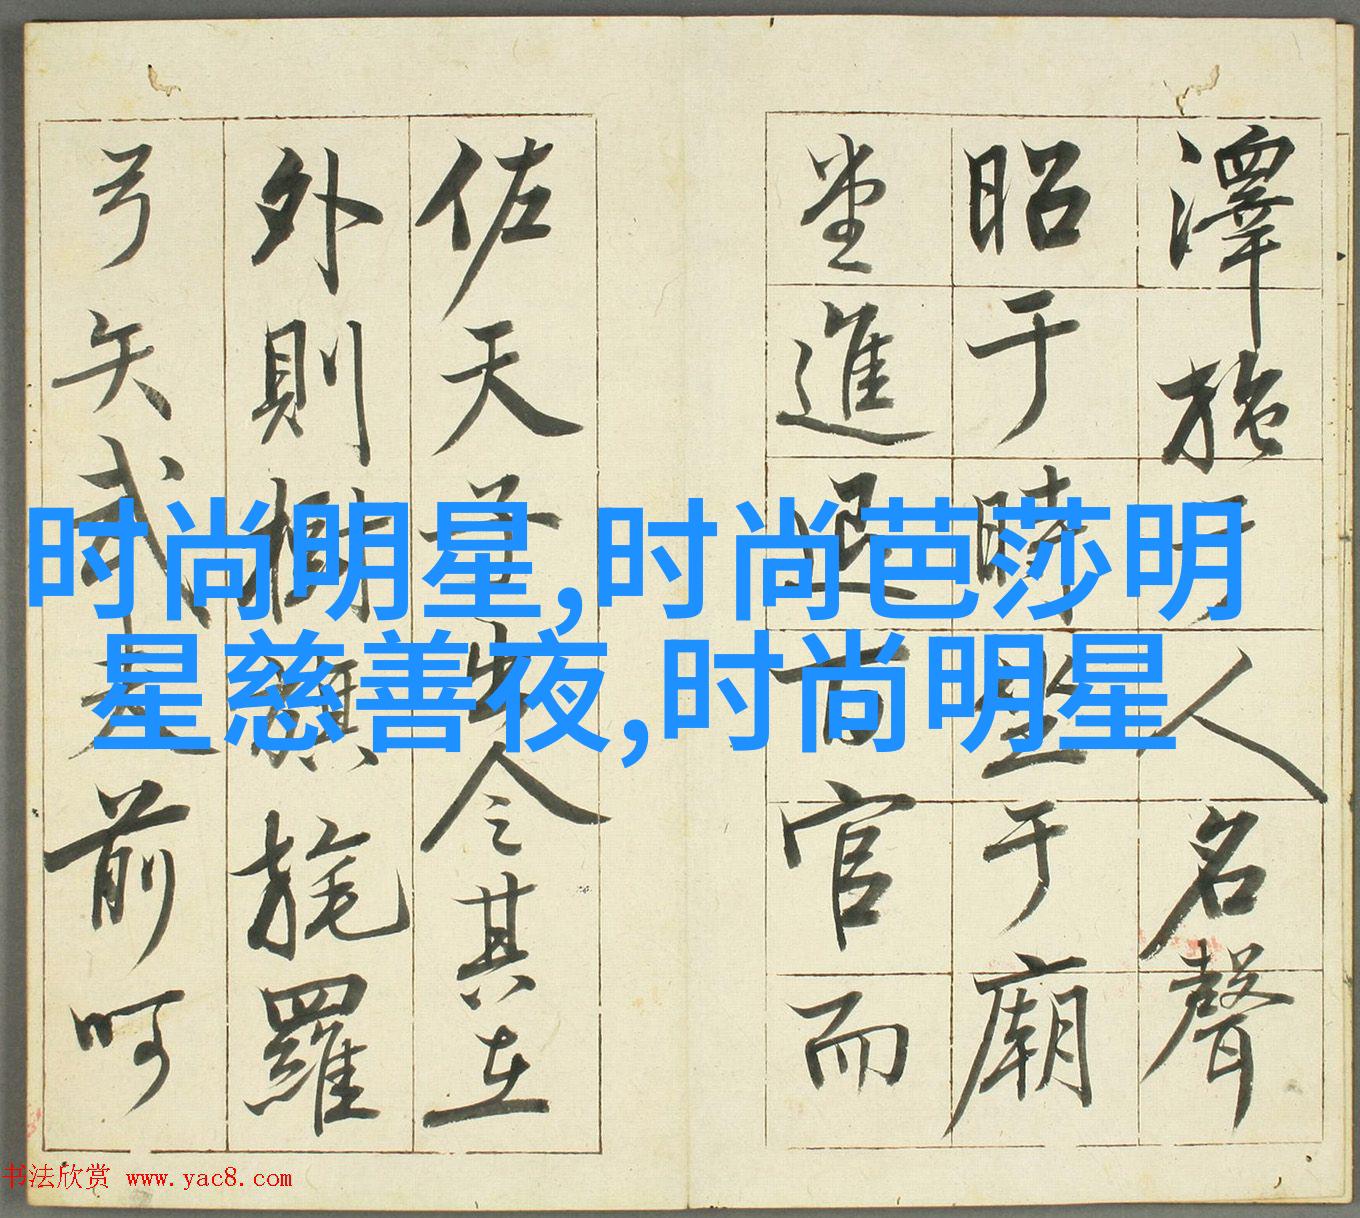 澤施于人名聲
昭于時坐于廟
堂進退百官而
佐天子出令其在
外則樹旄羅
弓矢武夫前呵
时尚明星,时尚芭莎明
星慈善夜,时尚明星
书法欣赏 www.yac8.com